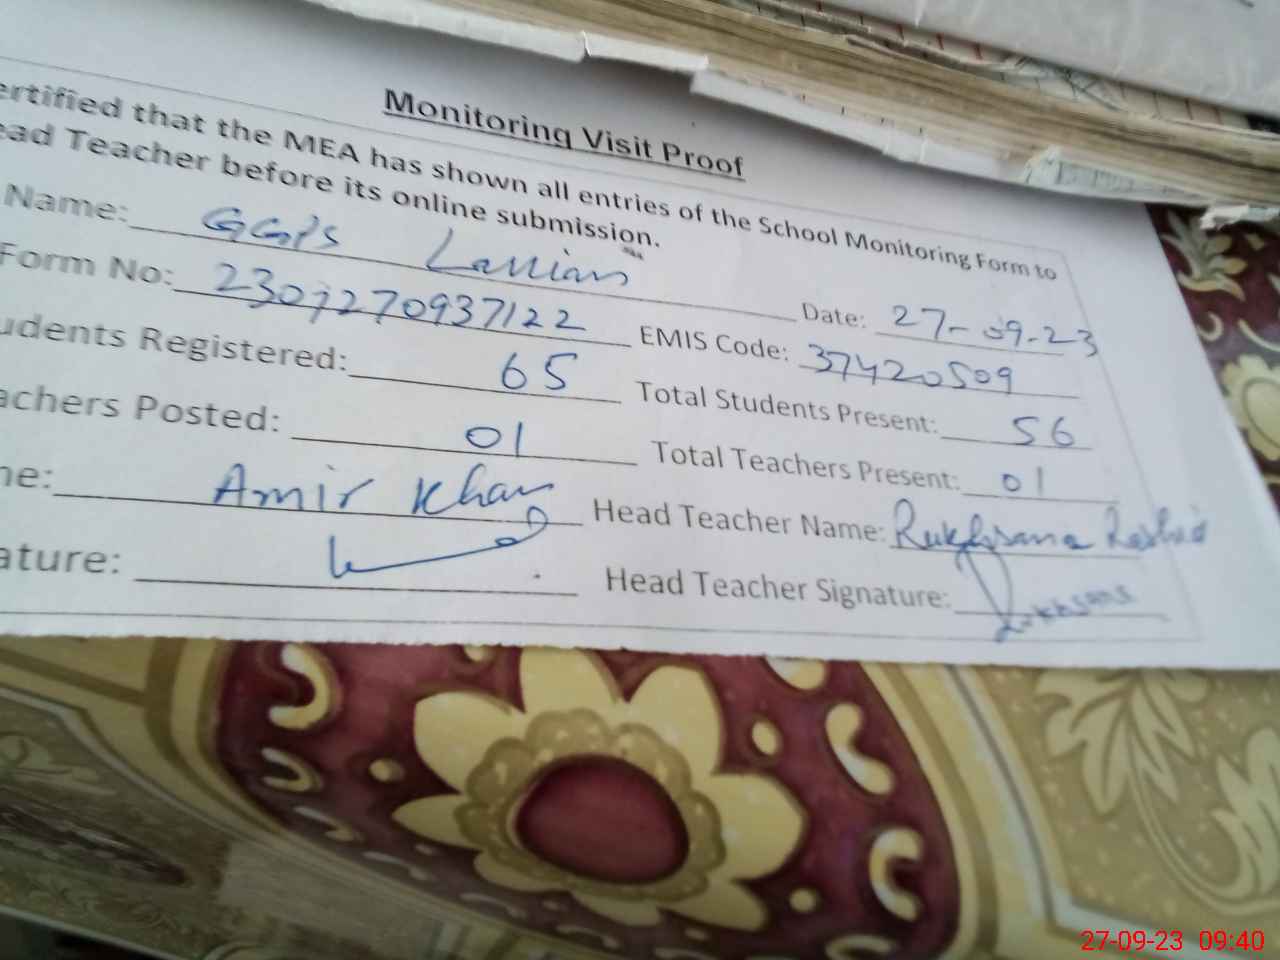 Monitoring Visit Proof
ertified that the MEA has shown all entries of the School Monitoring Form to
ead Teacher before its online submission.
Name: GGPS Lallian Date: 27-09-23
Form No: 2309270937122 EMIS Code: 37420509
udents Registered: 65 Total Students Present: 56
achers Posted: 01 Total Teachers Present: 01
ne: Amir Khan Head Teacher Name: Rukhsana Rashid
ature: Head Teacher Signature: Rukhsana
27-09-23 09:40